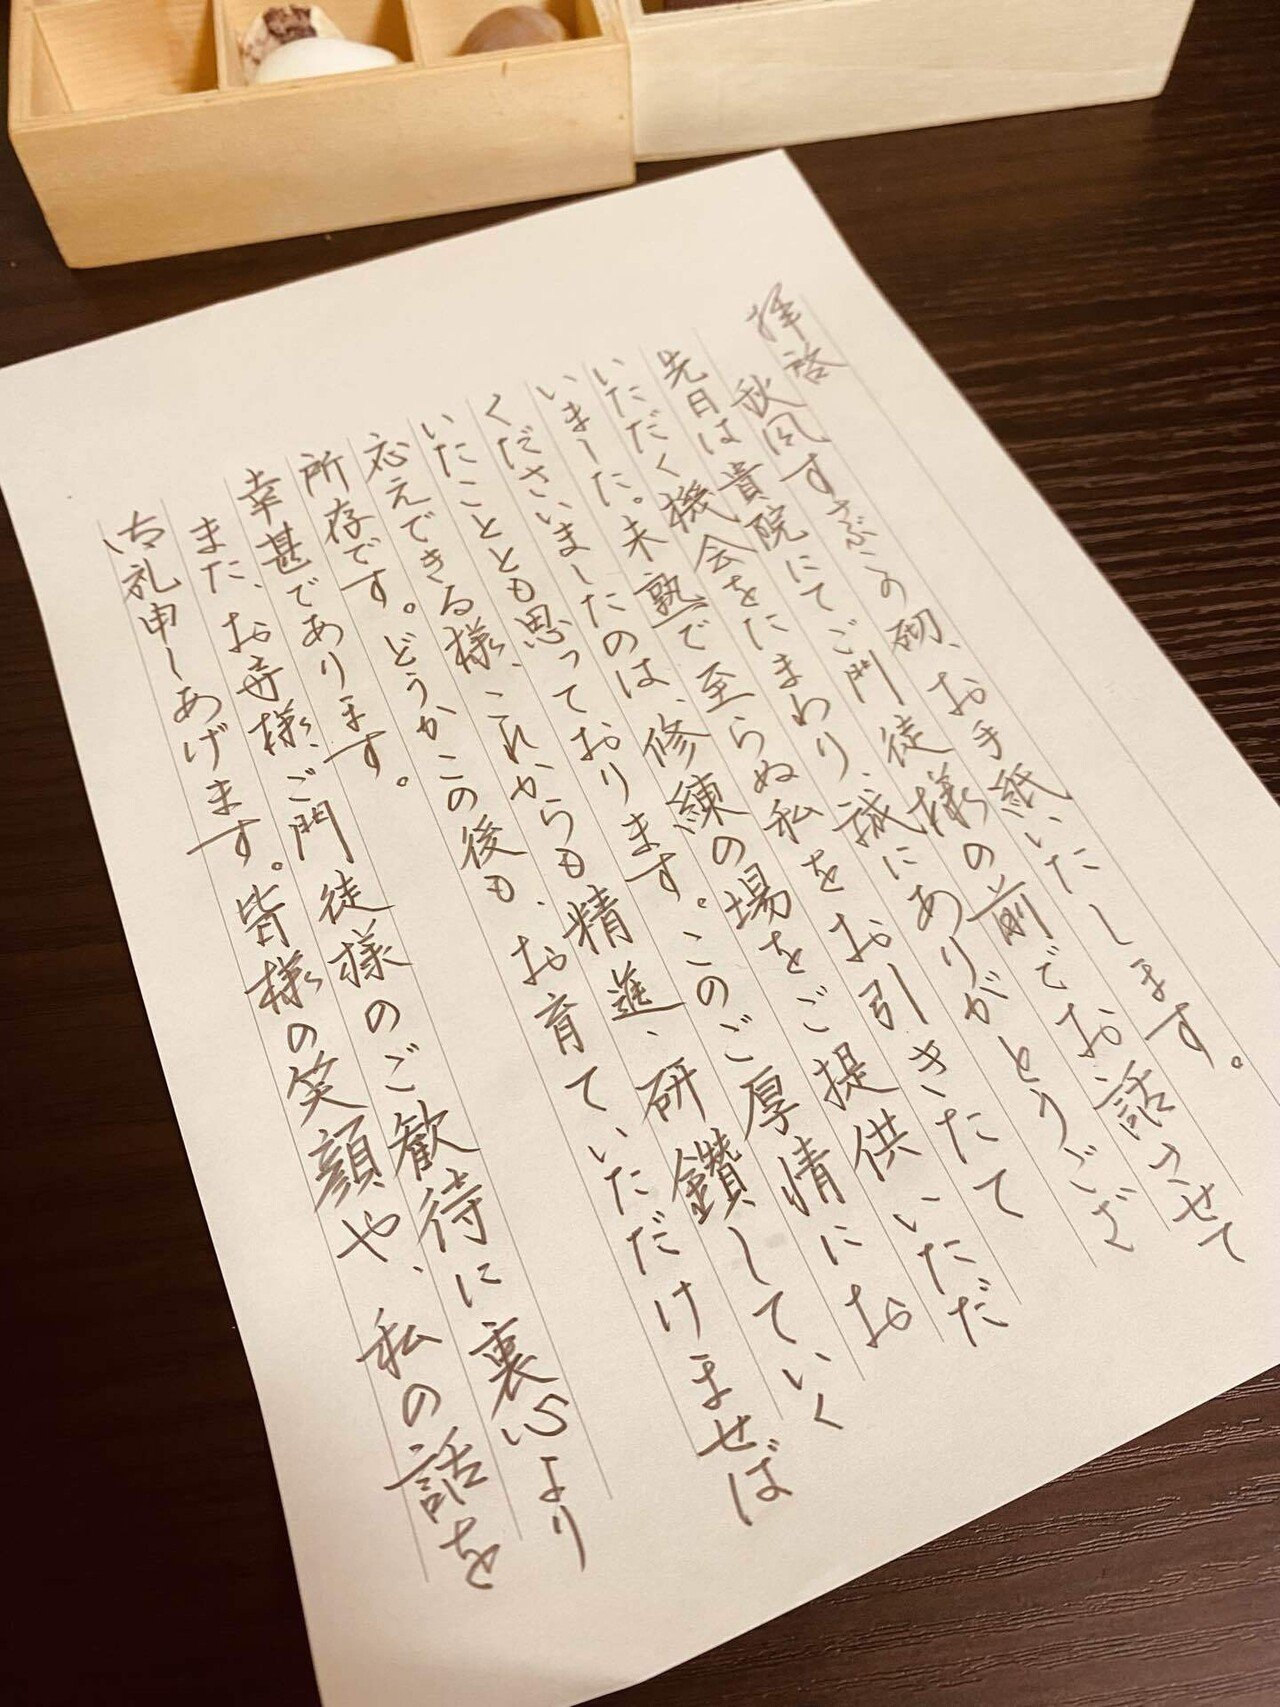 拝啓
秋風すぶこの砌、お手紙いたします。
先日は貴院にてご門徒様の前でお話させて
いただく機会をたまわり、誠にありがとうござ
いました。未熟で至らぬ私をお引きたて
くださいましたのは、修練の場をご提供いただ
いたこととも思っております。このご厚情にお
応えできる様、これからも精進、研鑽していく
所存です。どうかこの後も、お育ていただけませば
幸甚であります。
また、お寺様、ご門徒様のご歓待に衷心より
御礼申しあげます。皆様の笑顔や、私の話を